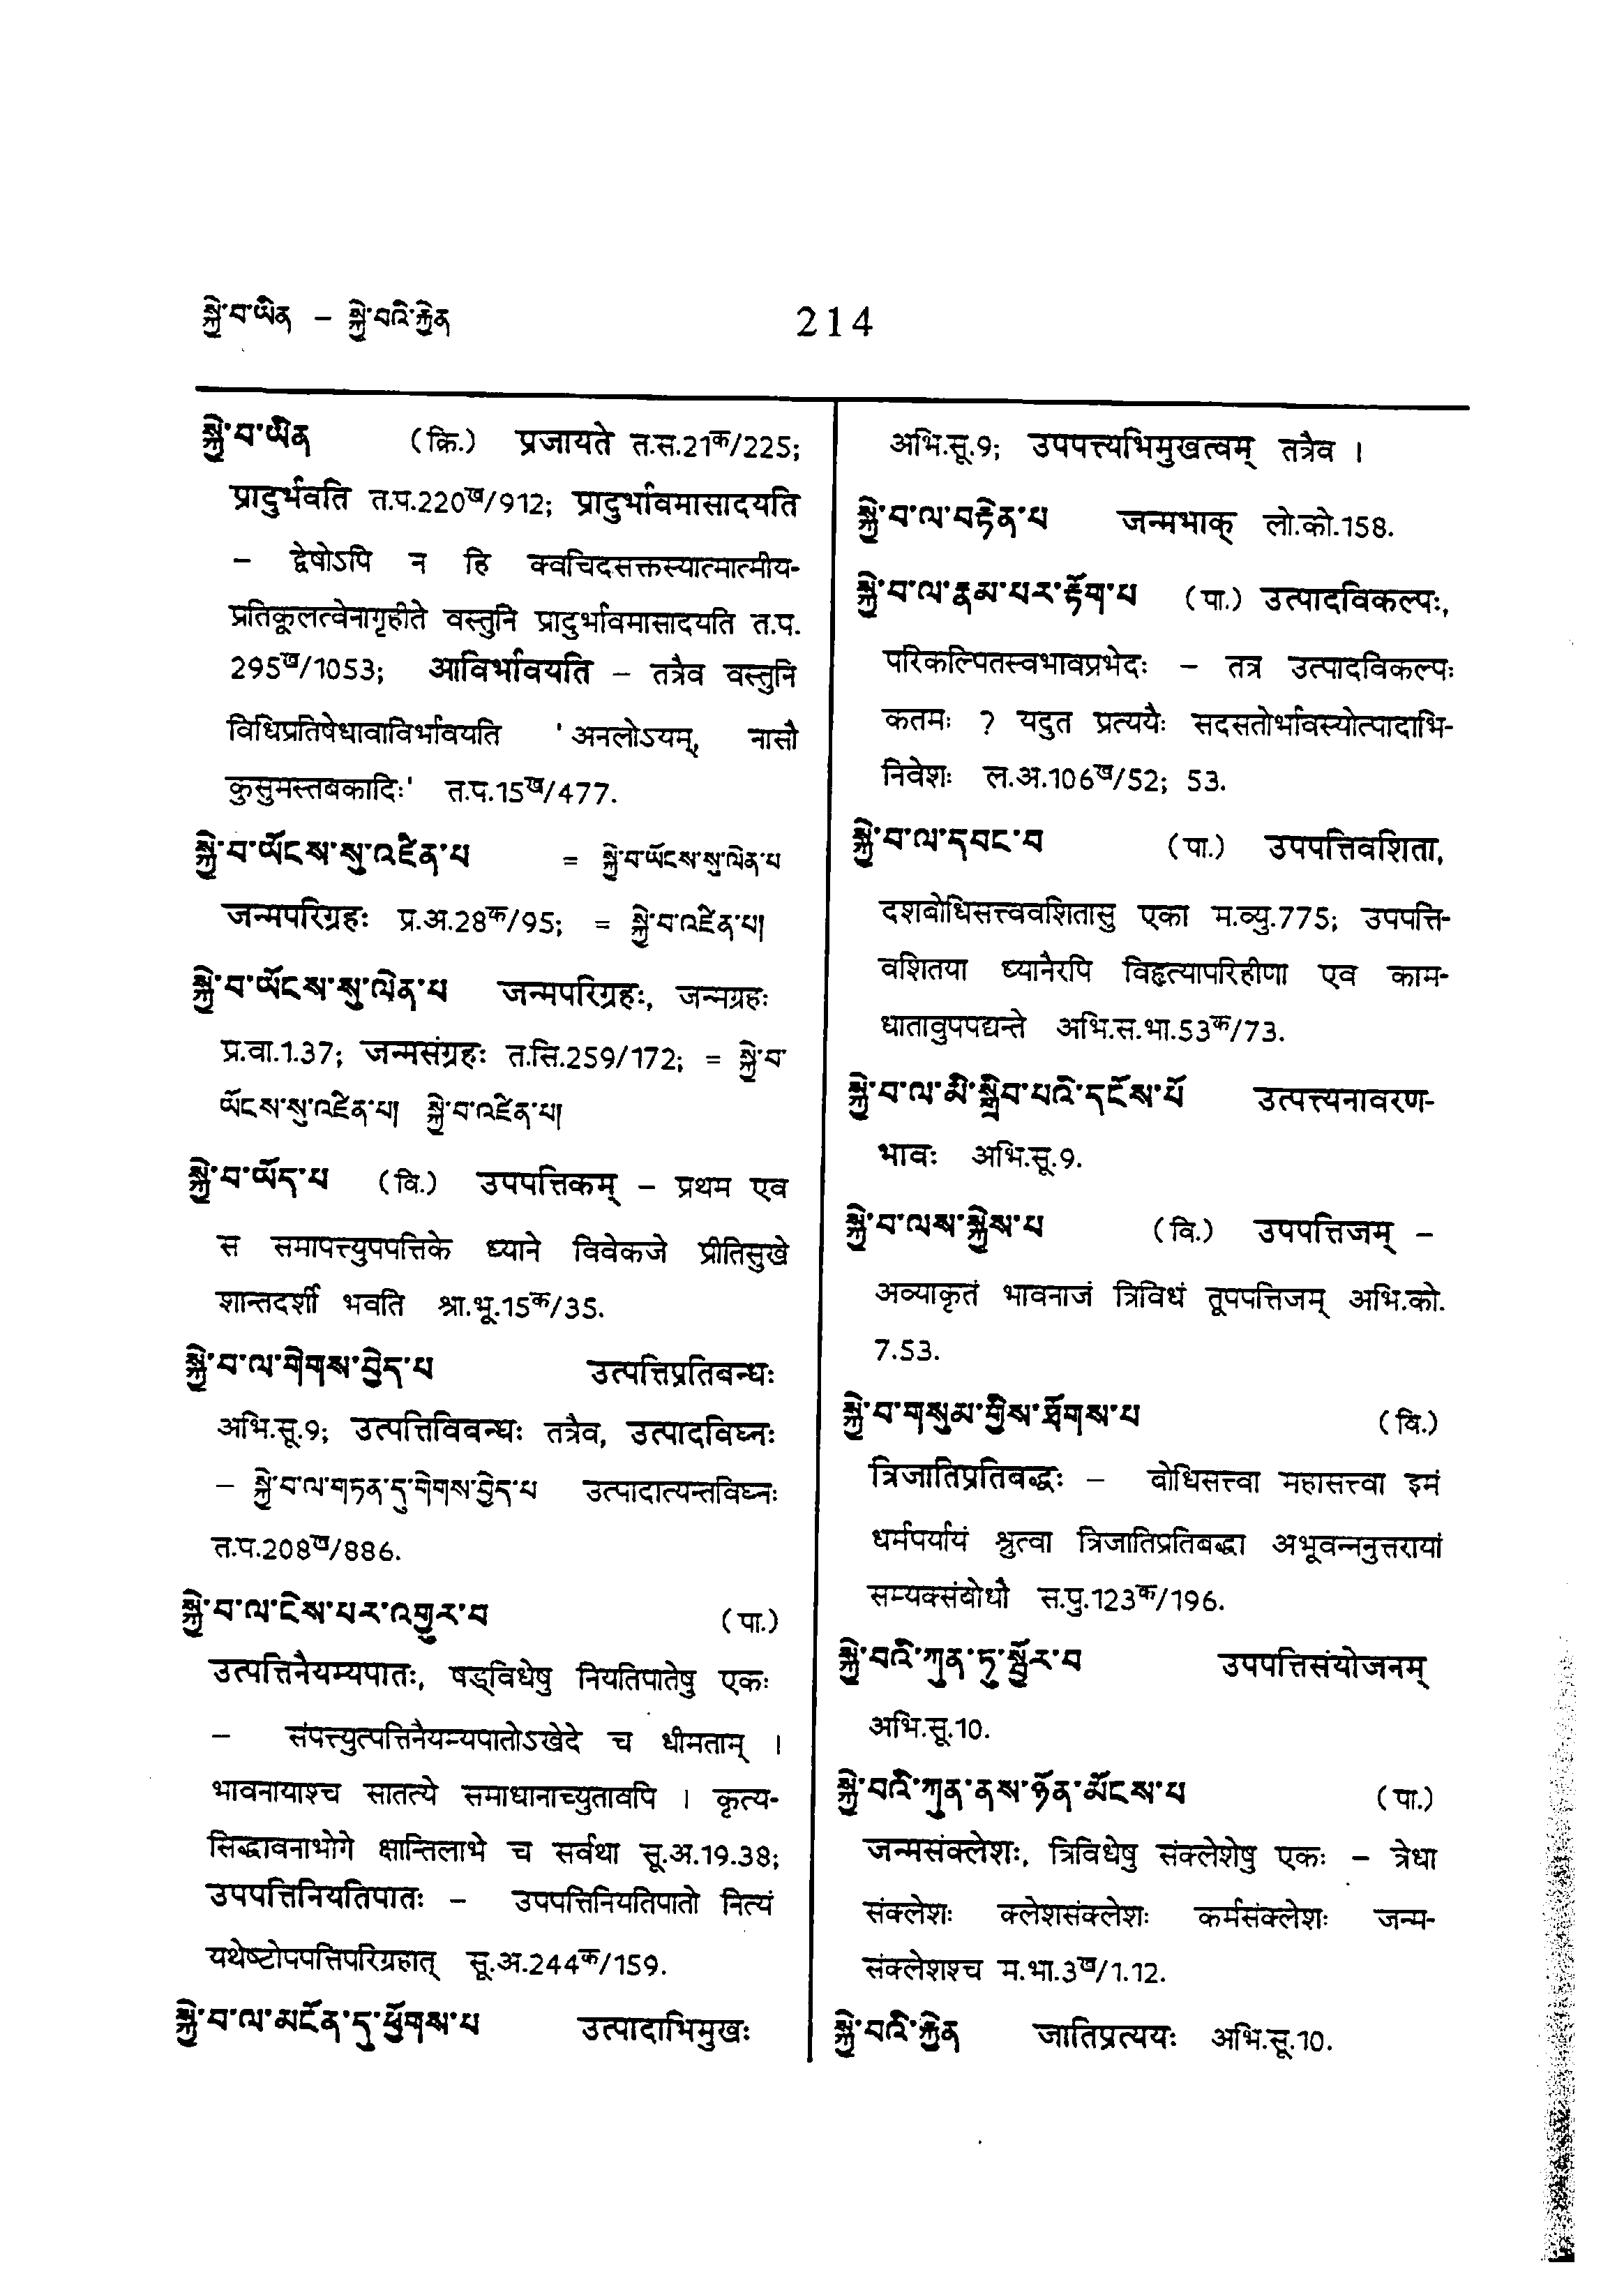 སྐྱེ་བ་ཡིན – སྐྱེ་བའི་རྐྱེན
214
སྐྱེ་བ་ཡིན (क्रि.) प्रजायते त.स.21क/225;
प्रादुर्भवति त.प.220ख/912; प्रादुर्भावमासादयति
– द्वेषोऽपि न हि क्वचिदसक्तस्यात्मात्मीय-
प्रतिकूलत्वेनागृहीते वस्तुनि प्रादुर्भावमासादयति त.प.
295ख/1053; आविर्भावयति – तत्रैव वस्तुनि
विधिप्रतिषेधावाविर्भावयति 'अनलोऽयम्, नासौ
कुसुमस्तबकादिः' त.प.15ख/477.
སྐྱེ་བ་ཡོངས་སུ་འཛིན་པ = སྐྱེ་བ་ཡོངས་སུ་ལེན་པ
जन्मपरिग्रहः प्र.अ.28क/95; = སྐྱེ་བ་འཛིན་པ།
སྐྱེ་བ་ཡོངས་སུ་ལེན་པ जन्मपरिग्रहः, जन्मग्रहः
प्र.वा.1.37; जन्मसंग्रहः त.सि.259/172; = སྐྱེ་བ་
ཡོངས་སུ་འཛིན་པ། སྐྱེ་བ་འཛིན་པ།
སྐྱེ་བ་ཡོད་པ (वि.) उपपत्तिकम् – प्रथम एव
स समापत्त्युपपत्तिके ध्याने विवेकजे प्रीतिसुखे
शान्तदर्शी भवति श्रा.भू.15क/35.
སྐྱེ་བ་ལ་གེགས་བྱེད་པ उत्पत्तिप्रतिबन्धः
अभि.सू.9; उत्पत्तिविबन्धः तत्रैव, उत्पादविघ्नः
– སྐྱེ་བ་ལ་གཏན་དུ་གེགས་བྱེད་པ उत्पादात्यन्तविघ्नः
त.प.208ख/886.
སྐྱེ་བ་ལ་ངེས་པར་འགྱུར་བ (पा.)
उत्पत्तिनैयम्यपातः, षड्विधेषु नियतिपातेषु एकः
– संपत्त्युत्पत्तिनैयम्यपातोऽखेदे च धीमताम् ।
भावनायाश्च सातत्ये समाधानाच्युतावपि । कृत्य-
सिद्धावनाभोगे क्षान्तिलाभे च सर्वथा सू.अ.19.38;
उपपत्तिनियतिपातः – उपपत्तिनियतिपातो नित्यं
यथेष्टोपपत्तिपरिग्रहात् सू.अ.244क/159.
སྐྱེ་བ་ལ་མངོན་དུ་ཕྱོགས་པ उत्पादाभिमुखः
अभि.सू.9; उपपत्त्यभिमुखत्वम् तत्रैव ।
སྐྱེ་བ་ལ་བརྟེན་པ जन्मभाक् लो.को.158.
སྐྱེ་བ་ལ་རྣམ་པར་རྟོག་པ (पा.) उत्पादविकल्पः,
परिकल्पितस्वभावप्रभेदः – तत्र उत्पादविकल्पः
कतमः ? यदुत प्रत्ययैः सदसतोर्भावस्योत्पादाभि-
निवेशः ल.अ.106ख/52; 53.
སྐྱེ་བ་ལ་དབང་བ (पा.) उपपत्तिवशिता,
दशबोधिसत्त्ववशितासु एका म.व्यु.775; उपपत्ति-
वशितया ध्यानैरपि विहृत्यापरिहीणा एव काम-
धातावुपपद्यन्ते अभि.स.भा.53क/73.
སྐྱེ་བ་ལ་མི་སྒྲིབ་པའི་དངོས་པོ उत्पत्त्यनावरण-
भावः अभि.सू.9.
སྐྱེ་བ་ལས་སྐྱེས་པ (वि.) उपपत्तिजम् –
अव्याकृतं भावनाजं त्रिविधं तूपपत्तिजम् अभि.को.
7.53.
སྐྱེ་བ་གསུམ་གྱིས་ཐོགས་པ (वि.)
त्रिजातिप्रतिबद्धः – बोधिसत्त्वा महासत्त्वा इमं
धर्मपर्यायं श्रुत्वा त्रिजातिप्रतिबद्धा अभूवन्ननुत्तरायां
सम्यक्संबोधौ स.पु.123क/196.
སྐྱེ་བའི་ཀུན་ཏུ་སྦྱོར་བ उपपत्तिसंयोजनम्
अभि.सू.10.
སྐྱེ་བའི་ཀུན་ནས་ཉོན་མོངས་པ (पा.)
जन्मसंक्लेशः, त्रिविधेषु संक्लेशेषु एकः – त्रेधा
संक्लेशः क्लेशसंक्लेशः कर्मसंक्लेशः जन्म-
संक्लेशश्च म.भा.3ख/1.12.
སྐྱེ་བའི་རྐྱེན जातिप्रत्ययः अभि.सू.10.